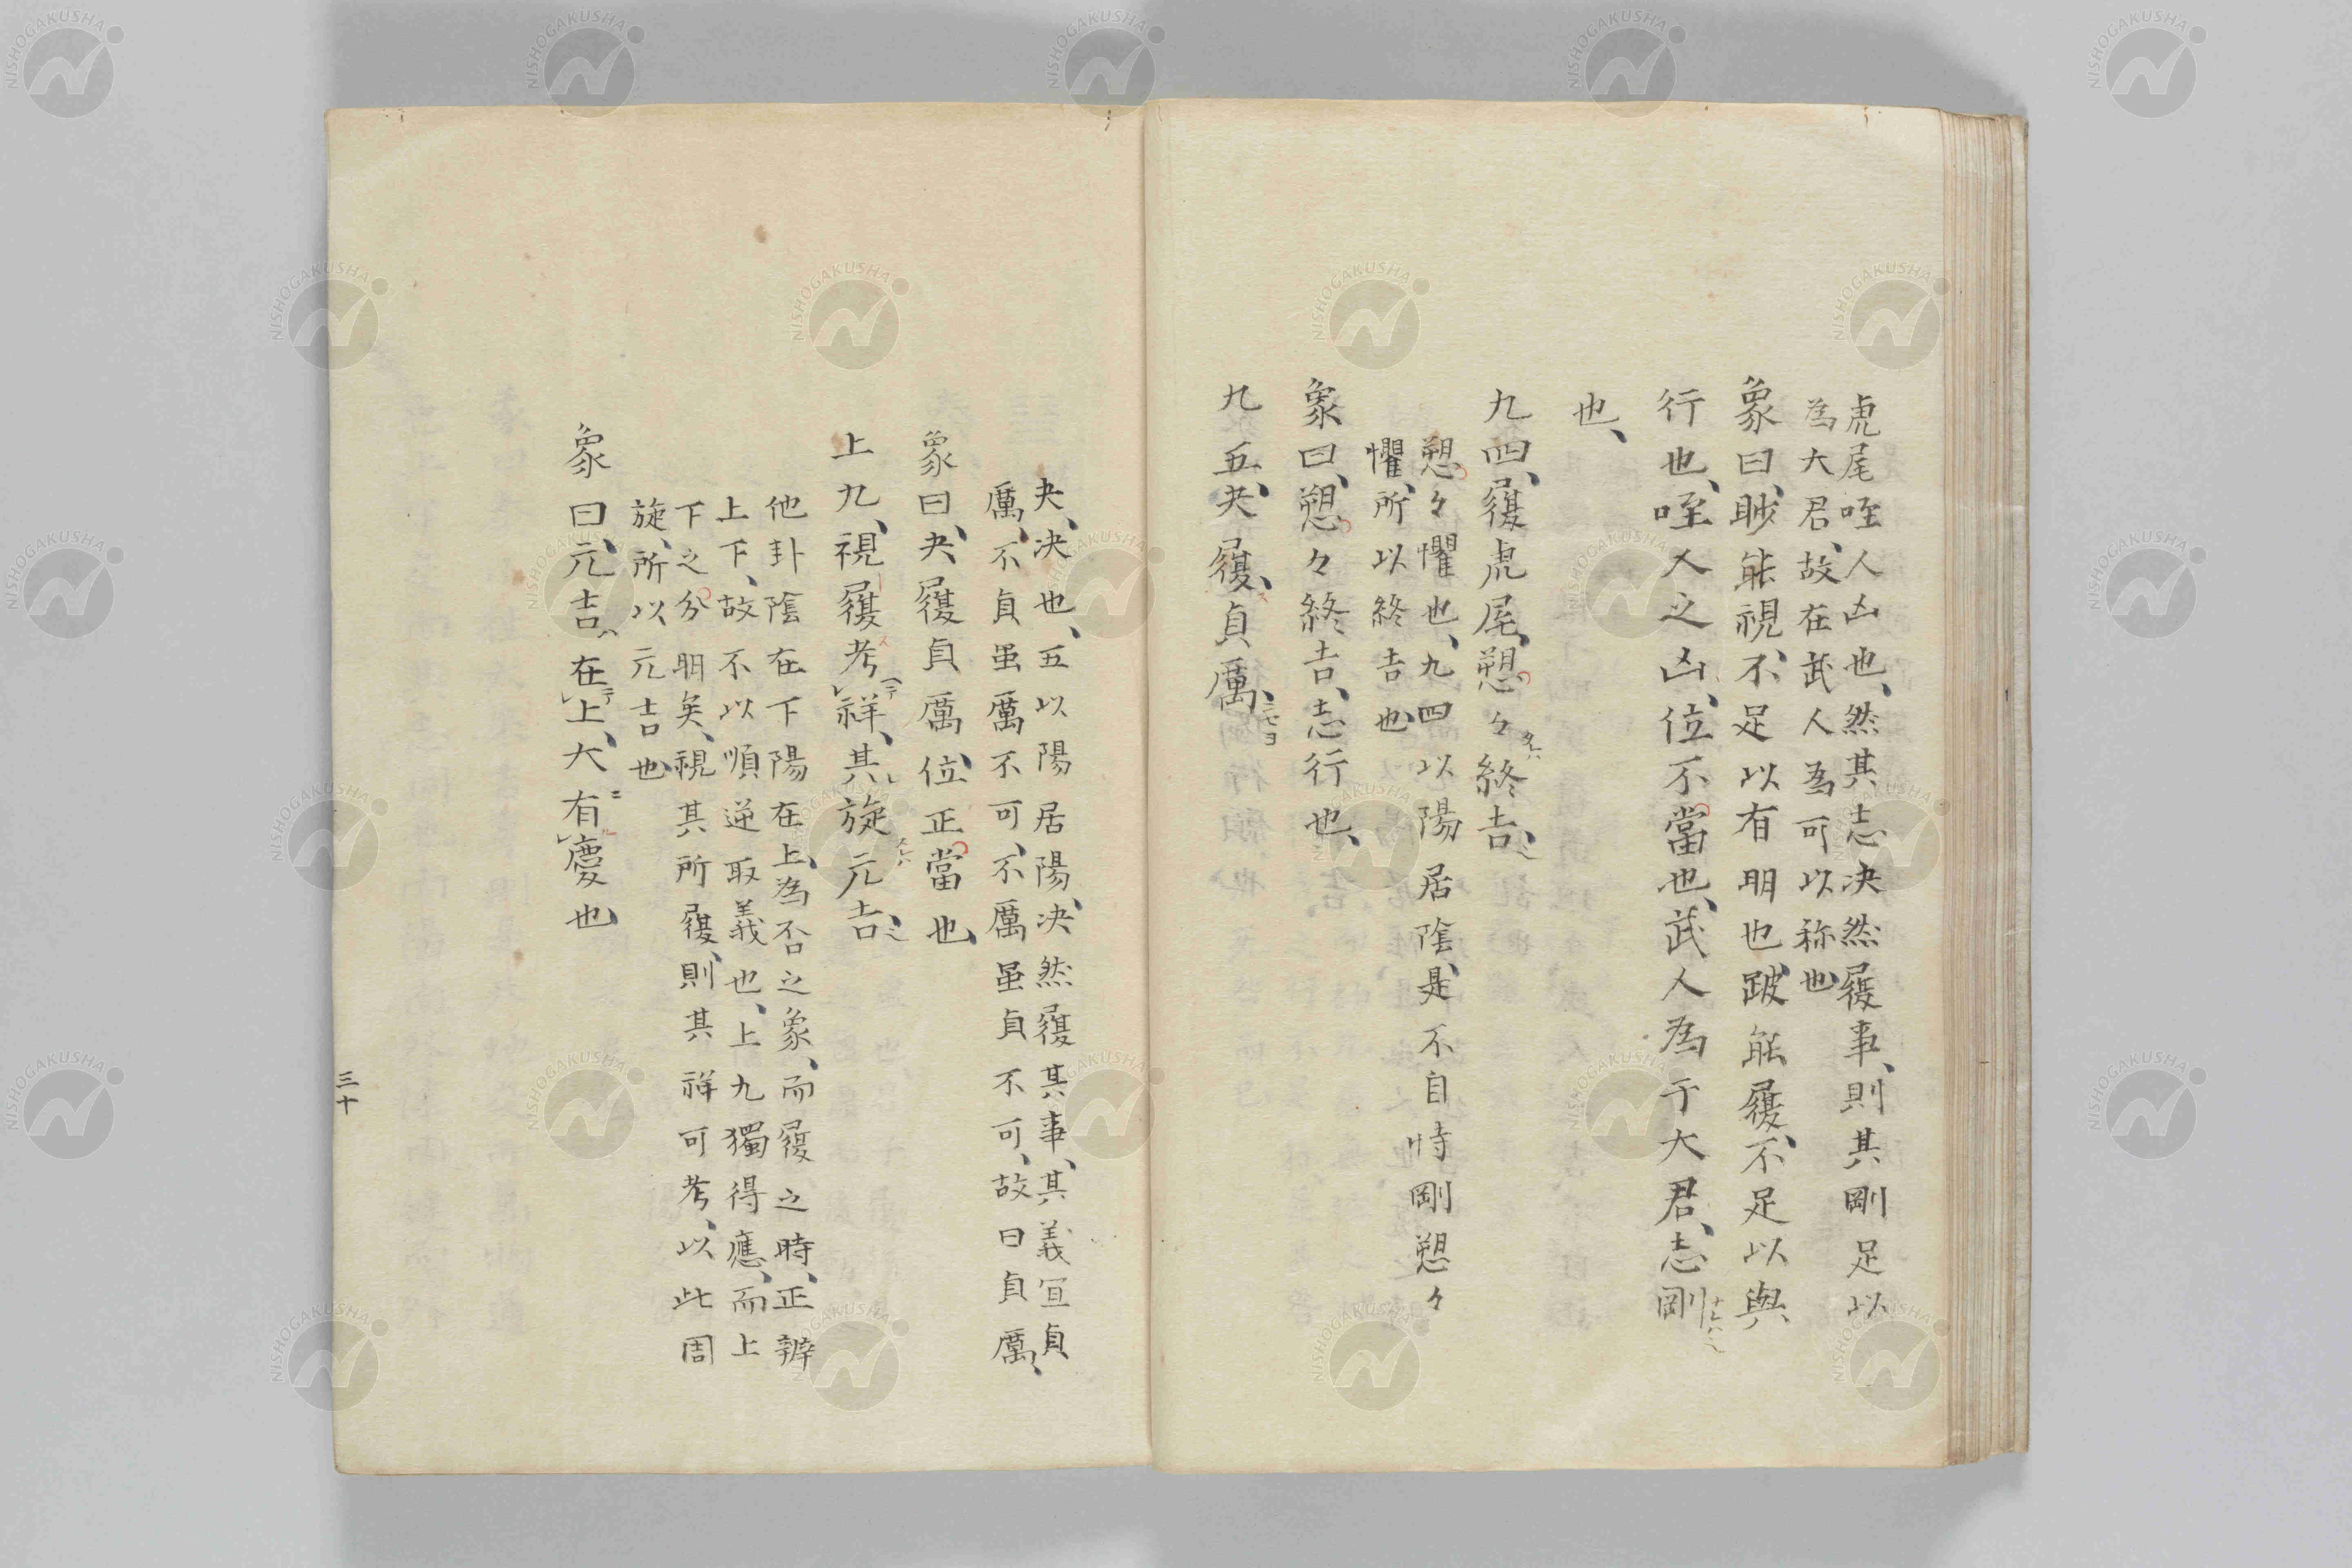 虎尾咥人凶也、然其志决然履事、則其剛足以
為大君、故在武人為可以称也
象曰、眇能視、不足以有明也、跛能履、不足以與
行也、咥人之凶、位不當也、武人為于大君、志剛
也、
九四、履虎尾、愬々終吉、
愬々懼也、九四以陽居陰、是不自恃剛愬々
懼、所以終吉也
象曰、愬々終吉、志行也、
九五、夬履、貞厲、
夬、决也、五以陽居陽、决然履其事、其義宜貞
厲、不貞虽厲不可、不厲虽貞不可、故曰貞厲、
象曰、夬履貞厲、位正當也、
上九、視履考祥、其旋元吉、
他卦陰在下陽在上、為否之象、而履之時、正辨
上下、故不以順逆取義也、上九獨得應、而上
下之分明矣、視其所履、則其祥可考、以此周
旋、所以元吉也
象曰、元吉、在上、大有慶也
三十
NISHOGAKUSHA